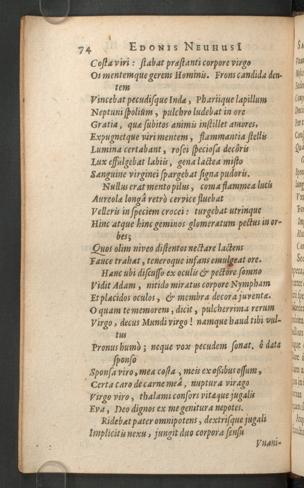 74 EDONIS NEUHUSI
Costa viri: stabat præstanti corpore virgo
Os mentemque gerens Hominis. Frons candida den-
tem
Vincebat pecudisque Indæ, Phariique lapillum
Neptuni spolium, pulchro ludebat in ore
Gratia, quæ subitos animis instillet amores,
Expugnetque viri mentem, flammantia stellis
Lumina certabant, rosei speciosa decoris
Lux effulgebat labiis, gena lactea misto
Sanguine virginei spargebat signa pudoris.
Nullus erat mento pilus, coma flammea lucis
Aureola longâ retrò cervice fluebat
Velleris in speciem crocei: turgebat utrinque
Hinc atque hinc geminos glomeratum pectus in or-
bes;
Quos olim niveo distentos nectare lactens
Fauce trahat, teneroque insans emulgeat ore.
Hanc ubi discusso ex oculis & pectore somno
Vidit Adam, nitido miratus corpore Nympham
Et placidos oculos, & membra decora juventæ.
O quam te memorem, dicit, pulcherrima rerum
Virgo, decus Mundi virgo! namque haud tibi vul-
tus
Pronus humò; neque vox pecudem sonat. ô data
sponso
Sponsa viro, mea costa, meis ex oßibus ossum,
Certa caro de carne meâ, nuptura virago
Virgo viro, thalami consors vitæque jugalis
Eva, Deo dignos ex me genitura nepotes.
Ridebat pater omnipotens, dextrisque jugali
Implicitis nexu, jungit duo corpora sensu
Vnani-